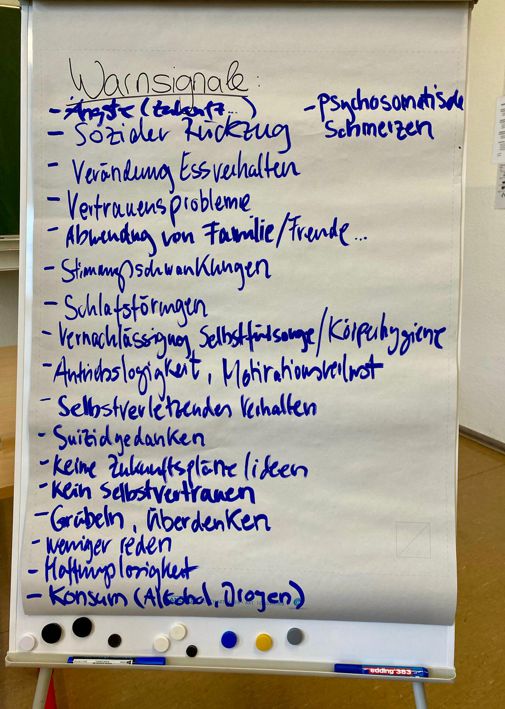 Warnsignale:
- Ängste (Zukunft...)
- Sozialer Rückzug
- Verändung Essverhalten
- Vertrauensprobleme
- Abwendung von Familie/Freunde...
- Stimmungsschwankungen
- Schlafstörungen
- Vernachlässigung Selbstfürsorge/Körperhygiene
- Antriebslosigkeit, Motivationsverlust
- Selbstverletzendes Verhalten
- Suizidgedanken
- Keine Zukunftspläne/ideen
- Kein Selbstvertrauen
- Grübeln, Überdenken
- weniger reden
- Hoffnungslosigkeit
- Konsum (Alkohol, Drogen)
- Psychosomatische
Schmerzen
edding 383